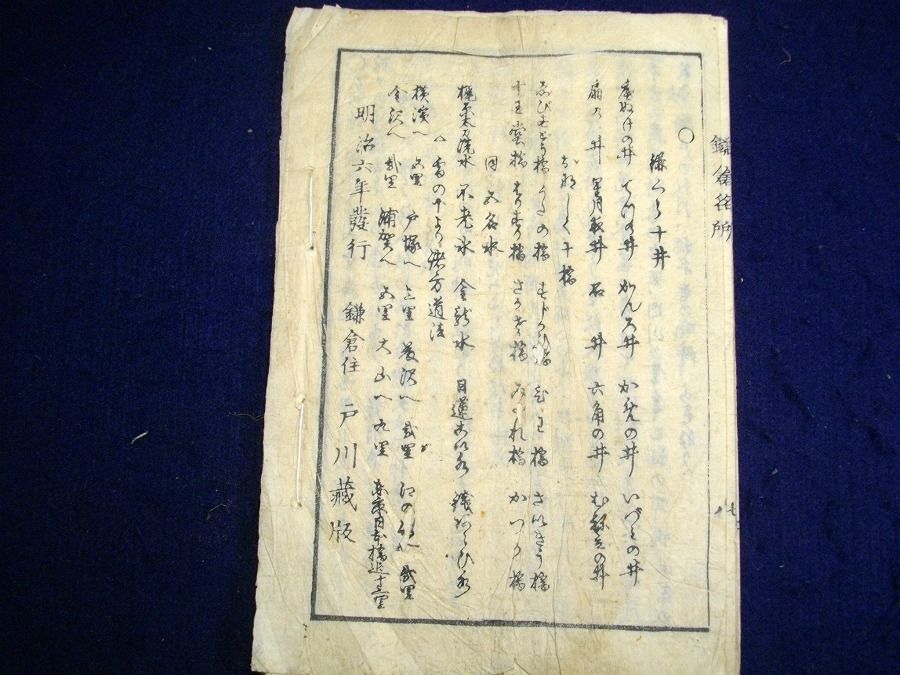 鎌倉名所
〇 鎌くら十井
底ぬけの井 てつの井 かんろ井 かめの井 いづみの井
扇の井 星月夜井 石井 六角の井 むねたての井
おなしく十橋
ゑびす堂橋 うたの橋 すじかへ橋 琵琶橋 さいきやう橋
十王堂橋 さかせ橋 みだれ橋 かつら橋
同五名水
梶原太刀洗水 不老水 金龍水 日蓮 水 銭あらひ水
雪の下より諸方道法
横濱へ 五里 戸塚へ 三里 藤沢へ 弐里 江の しまへ 弐里
金沢へ 弐里 浦賀へ 五里 大山へ 九里 東京日本橋迄十三里
明治六年發行 鎌倉住 戸川藏版